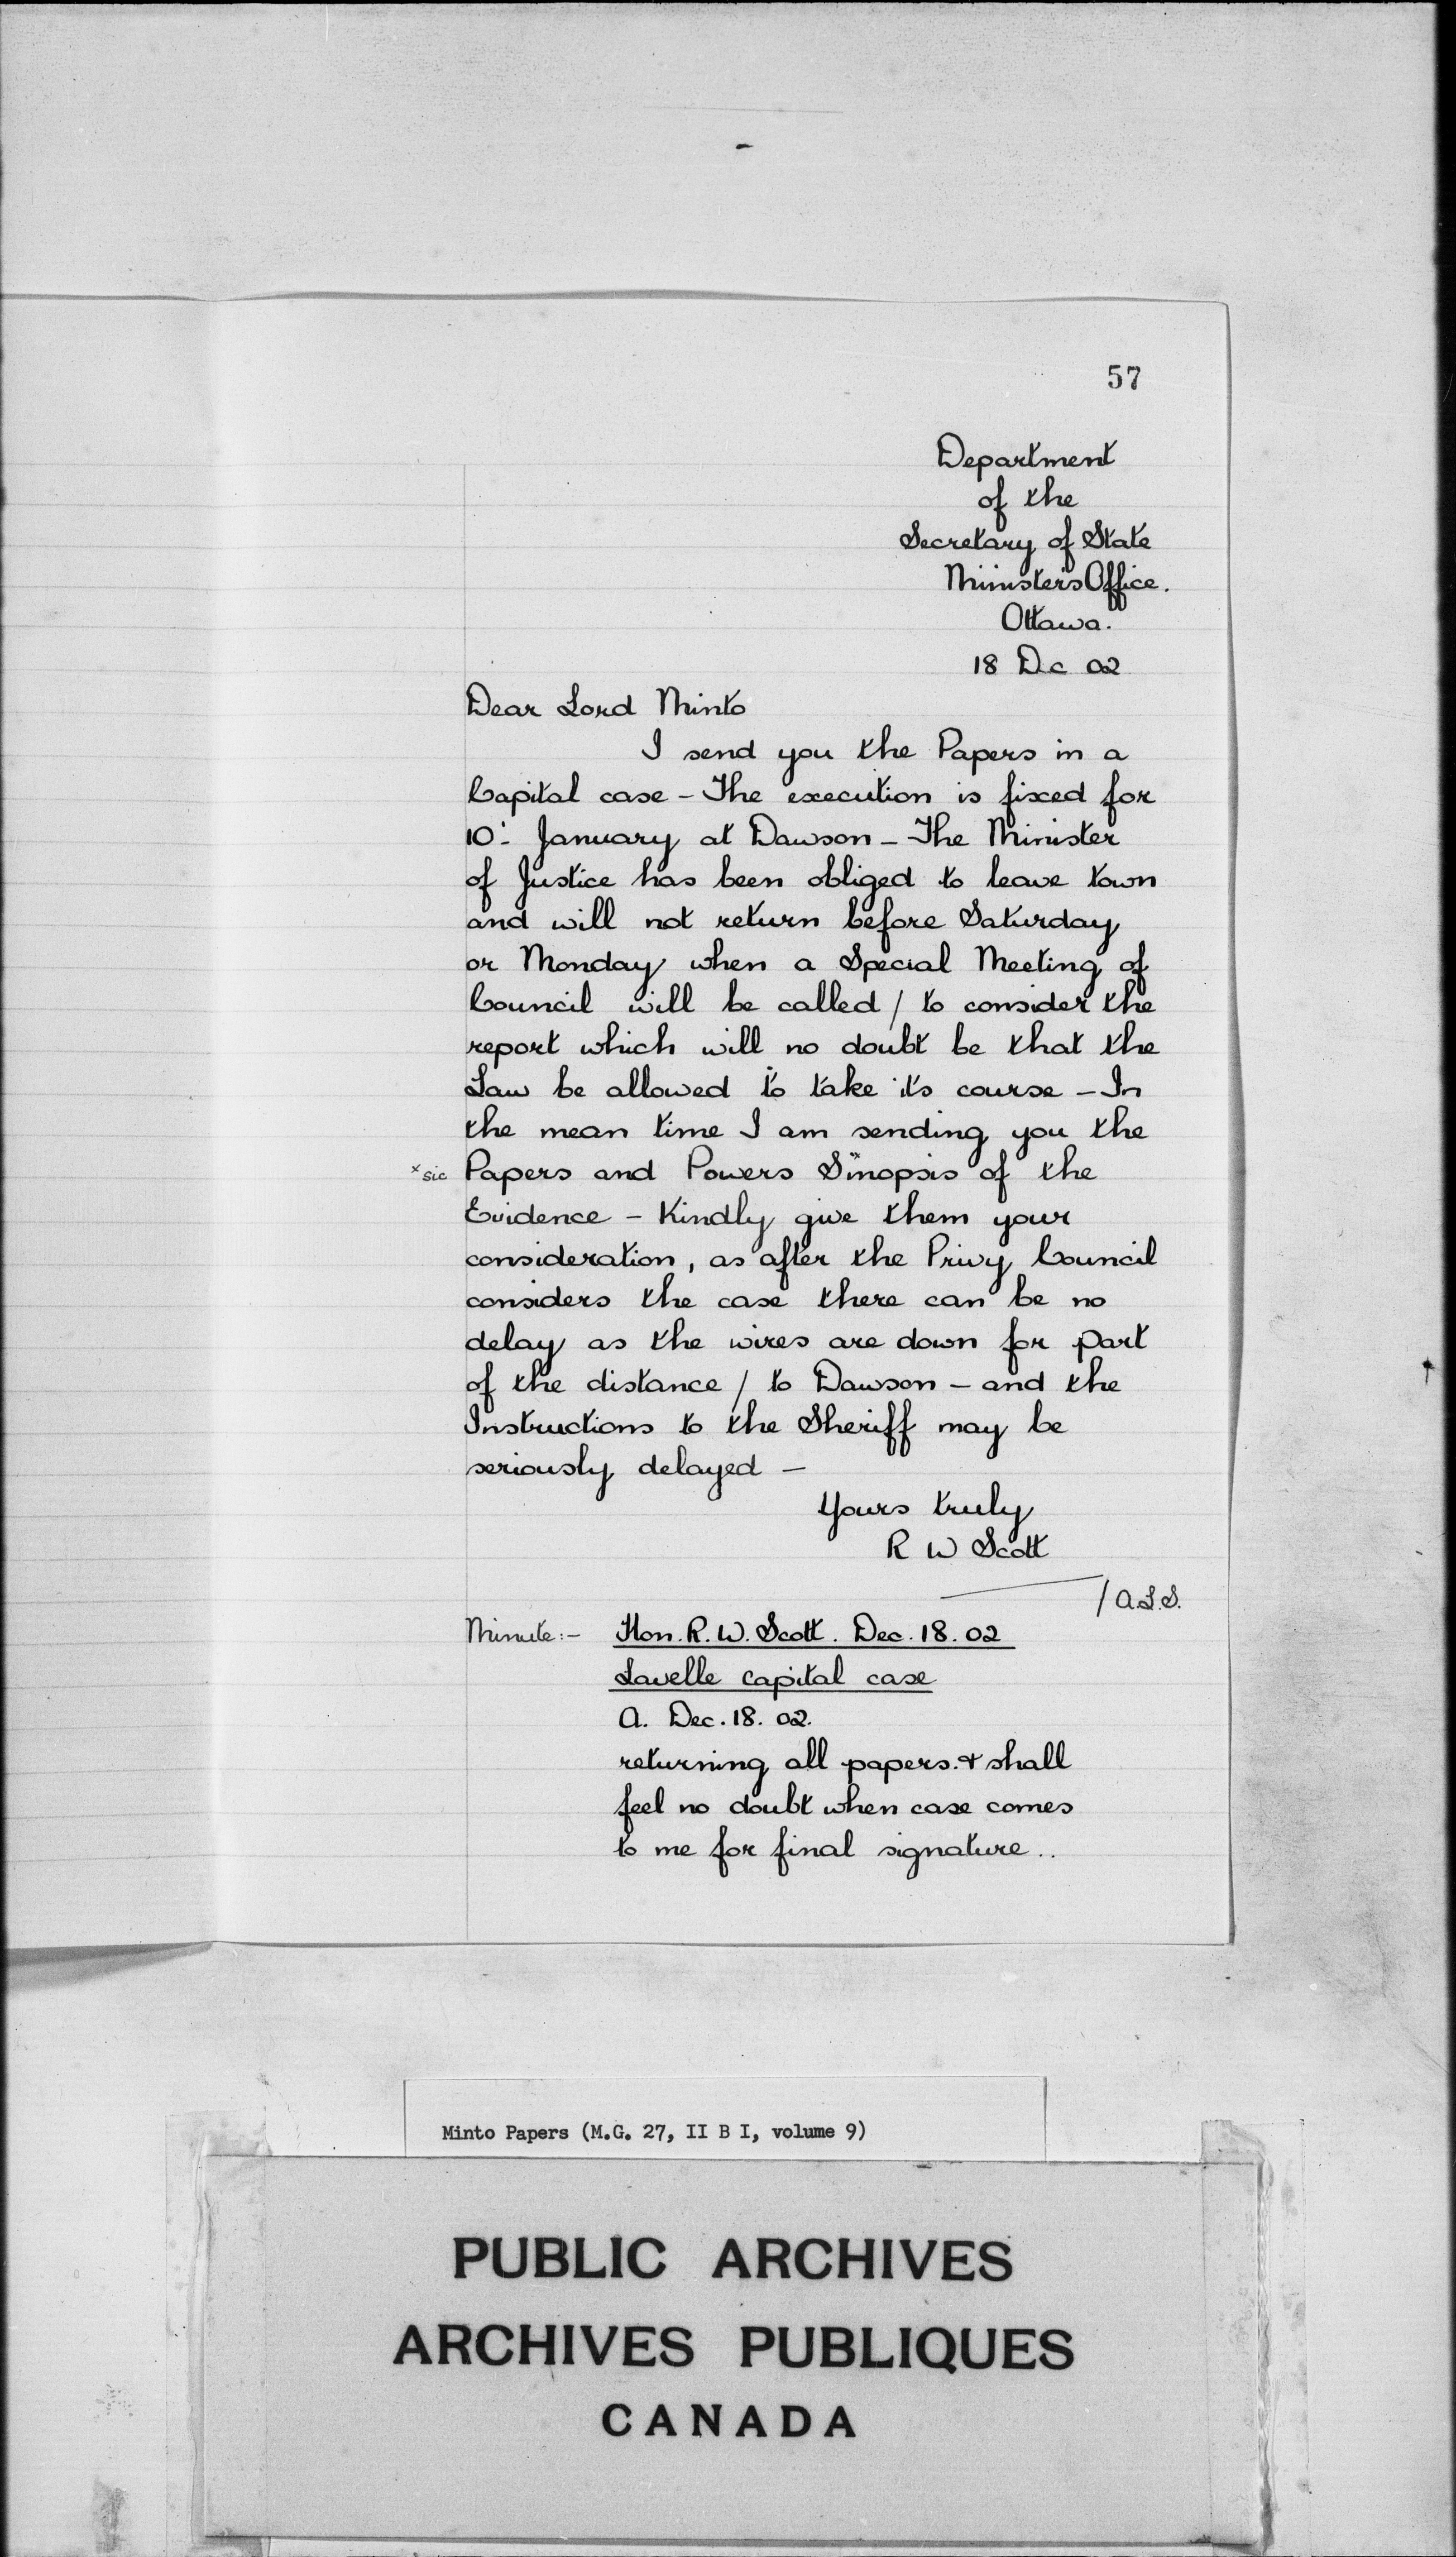 57
Department
of the
Secretary of State
Minister's Office.
Ottawa.
18 Dc 02
Dear Lord Minto
I send you the Papers in a
Capital case - The execution is fixed for
10: January at Dawson - The Minister
of Justice has been obliged to leave town
and will not return before Saturday
or Monday when a Special Meeting of
Council will be called / to consider the
report which will no doubt be that the
Law be allowed to take its course - In
the mean time I am sending you the
x sic Papers and Powers Sinopsis x of the
Evidence - Kindly give them your
consideration, as after the Privy Council
considers the case there can be no
delay as the wires are down for part
of the distance / to Dawson - and the
Instructions to the Sheriff may be
seriously delayed -
Yours truly
R W Scott
/ A.L.S.
Minute:- Hon. R. W. Scott. Dec. 18. 02
Lavelle capital case
A. Dec. 18. 02.
returning all papers. & shall
feel no doubt when case comes
to me for final signature..
Minto Papers (M.G. 27, II B I, volume 9)
PUBLIC ARCHIVES
ARCHIVES PUBLIQUES
CANADA